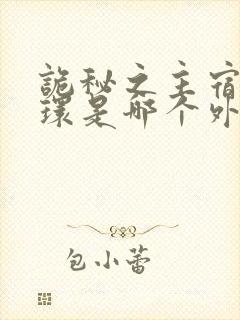 詭秘之主宿
環是哪个外
包小蕾